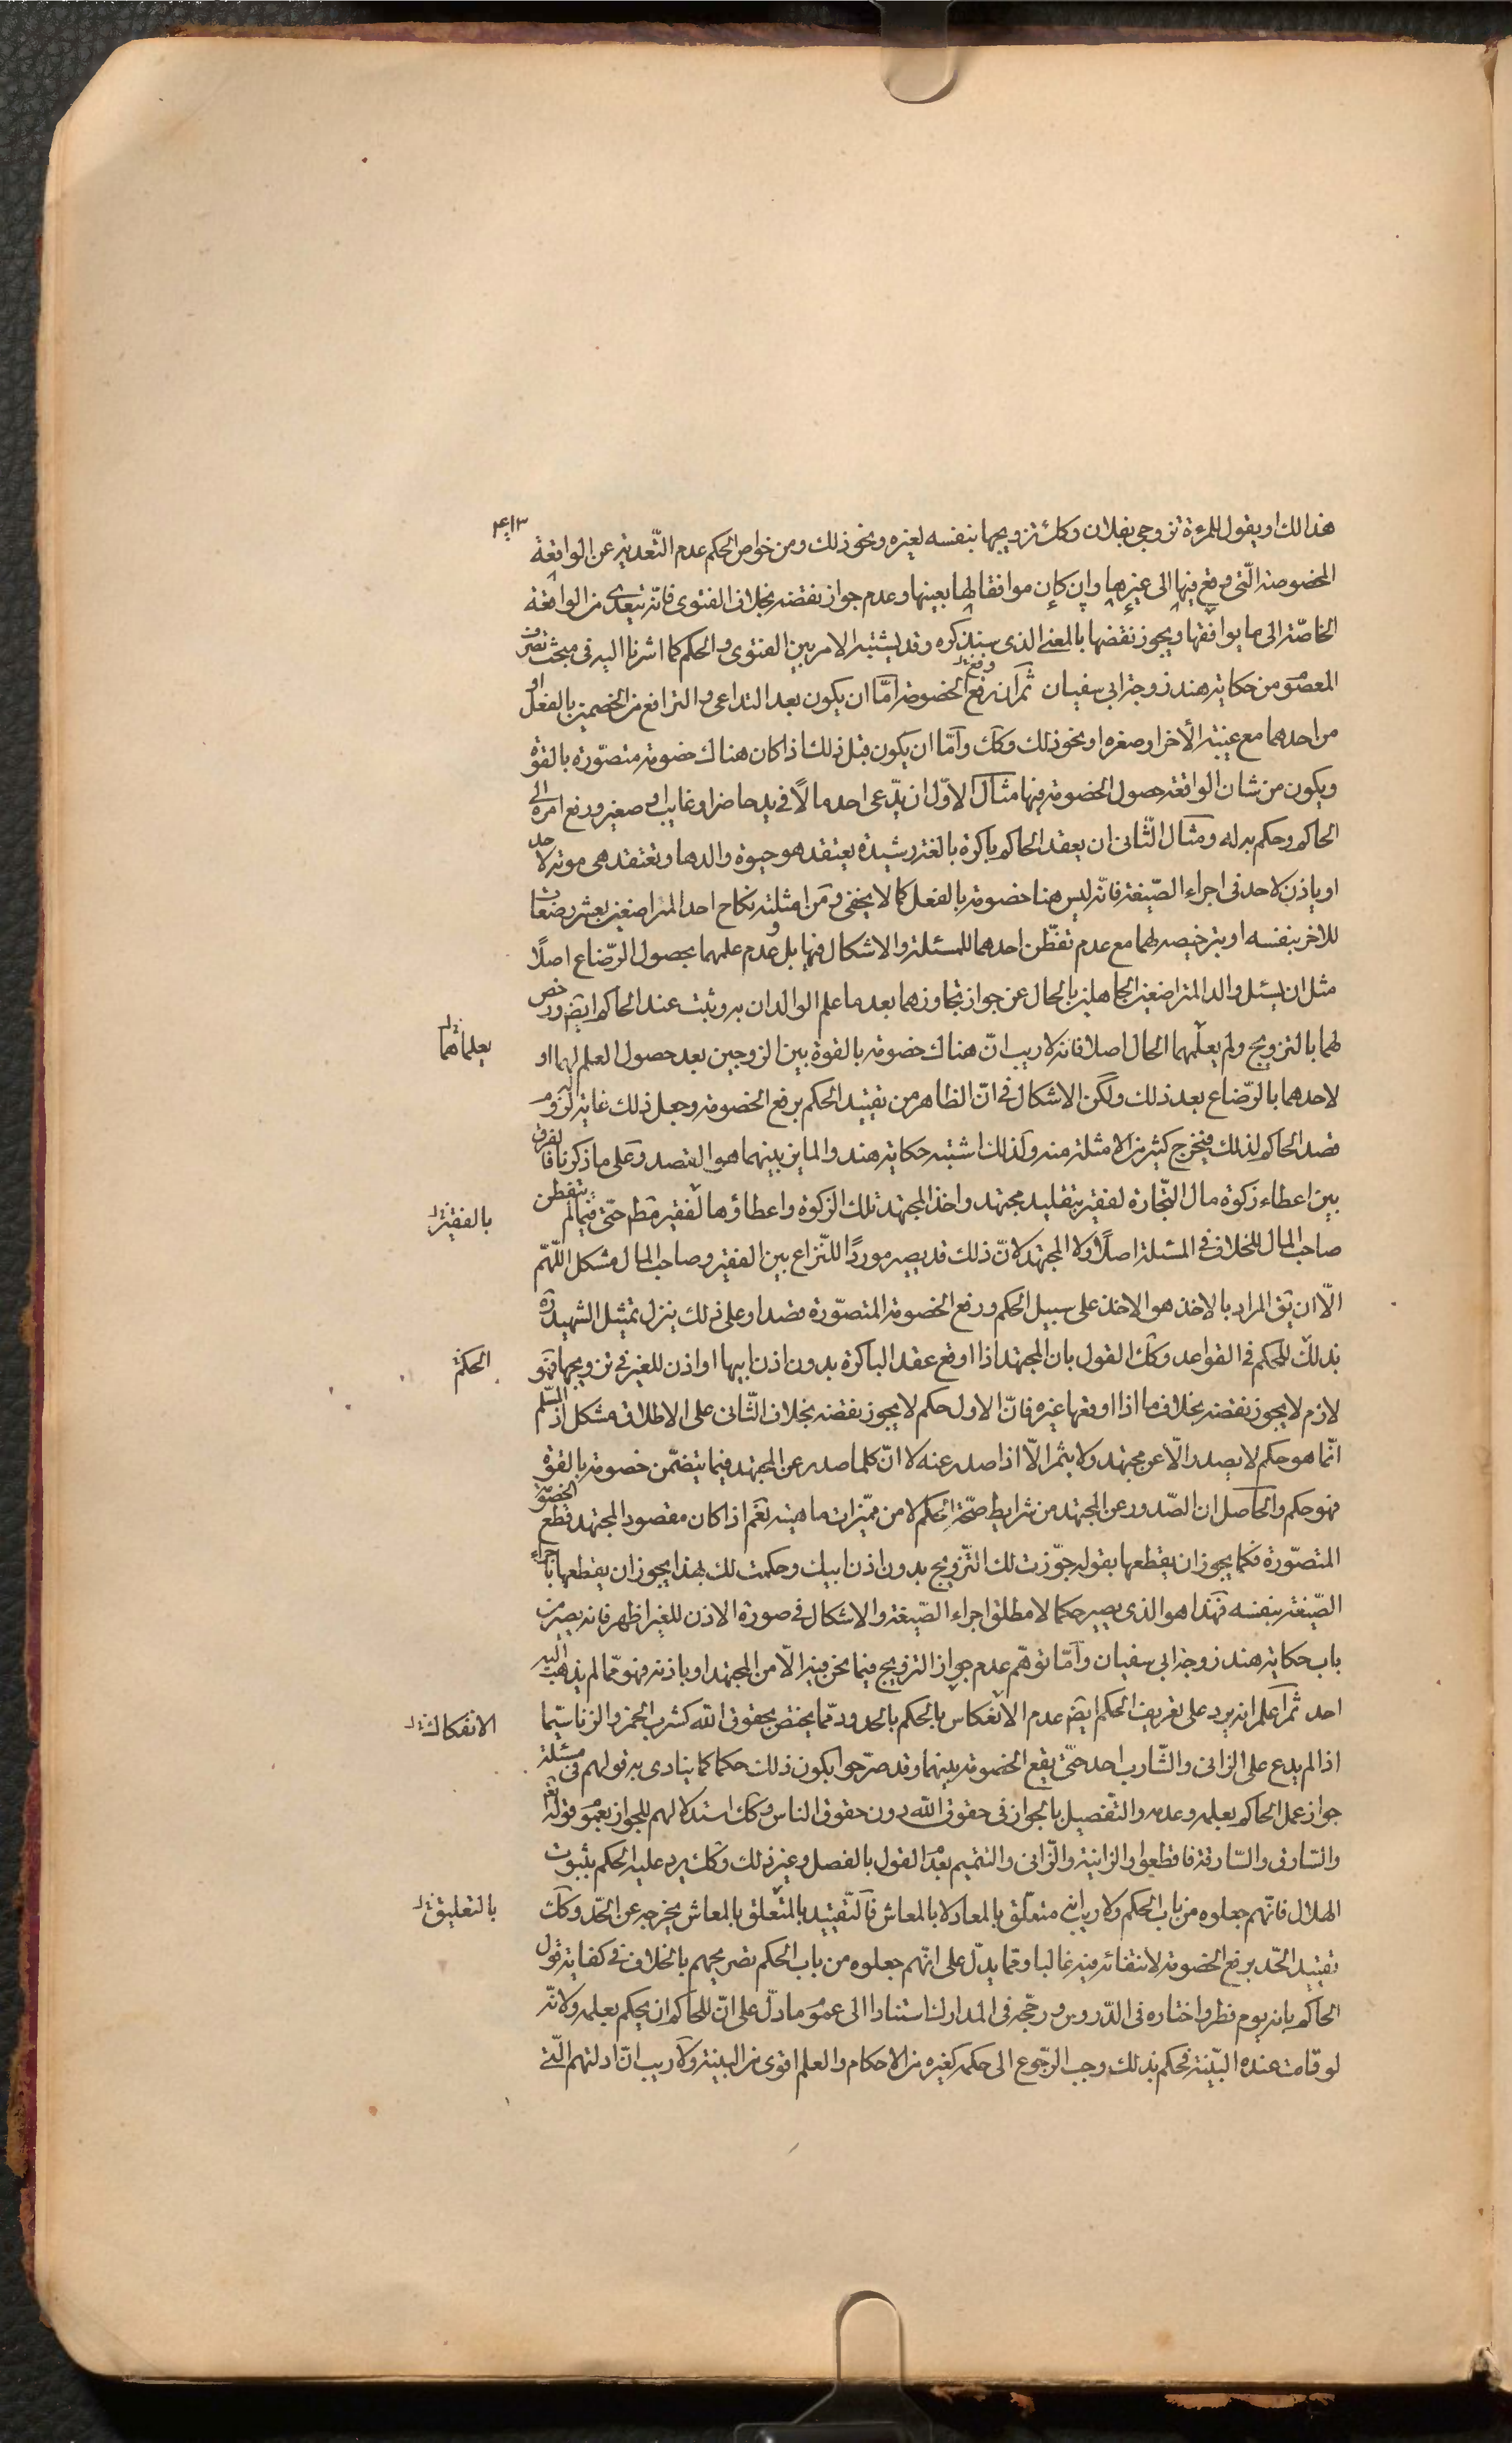 هذا لك او يقول للمرءة تزوجى بفلان وكك تزويجها بنفسه لغيره ونحو ذلك ومن خواص الحكم عدم التّعديه عن الواقعة
المخصوصة الّتى وقع فيها الى غيرها وإن كان موافقا لها بعينها وعدم جواز نقضه بخلاف الفتوى فانّه يتعدى من الواقعة
الخاصّة الى ما يوافقها ويجوز نقضها بالمعنى الذى سنذكره وقد يشتبه الامر بين الفتوى والحكم كما اشرنا اليه فى مبحث تصرف
المعصوم من حكاية هند زوجة ابى سفيان ثم ان رفع الخصومة امّا ان يكون بعد التداعى والترافع من الخصمين بالفعل او
من احدهما مع غيبة الأخر او صغره او نحو ذلك وكك وامّا ان يكون قبل ذلك اذا كان هناك خصومة متصوّرة بالقوّة
ويكون من شان الواقعة حصول الخصومة فيها مثال الاوّل ان يدّعى احد مالاً فى يد حاضر او غايب او صغير ورفع امره الى
الحاكم وحكم به له ومثال الثّانى ان يعقد الحاكم باكرة بالغة رشيدة يعتقد هو حيوة والدها وتعتقد هى موته لاحد
او ياذن لاحد فى اجراء الصّيغة فانّه ليس هنا خصومة بالفعل كما لا يخفى ومن امثلته نكاح احد المتراضعين بعشر رضعات
للاخر بنفسه او بترخيصه لهما مع عدم تفطّن احدهما للمسئلة والاشكال فيها بل وعدم علمهما بحصول الرّضاع اصلاً
مثل ان يسئل والد المتراضعين الجاهلين بالحال عن جواز تجاوزهما بعد ما علم الوالدان به وثبت عند الحاكم ايضا ورخص
لهما بالتزويج ولم يعلمهما الحال اصلا فانه لا ريب انّ هناك خصومة بالقوة بين الزوجين بعد حصول العلم لهما او
يعلماهما
لاحدهما بالرّضاع بعد ذلك ولكن الاشكال فى انّ الظاهر من تقييد الحكم برفع الخصومة وجعل ذلك غاية له لزوم
قصد الحاكم لذلك فيخرج كثير من الامثلة منه ولذلك اشتبه حكاية هند والماين بينهما هو القصد وعلى ما ذكرنا فالفرق
بين اعطاء زكوة مال التّجارة لفقير بتقليد مجتهد واخذ المجتهد تلك الزكوة واعطاؤها لفقير مظم حتّى فيما لم يتفطن
بالفقير
صاحب المال للخلاف فى المسئلة اصلاً ولا المجتهد لانّ ذلك قد يصير مورداً للنّزاع بين الفقير وصاحب المال مشكل اللّهمّ
الّا ان يق المراد بالاخذ هو الاخذ على سبيل الحكم ورفع الخصومة المتصوّرة قصدا وعلى ذلك ينزل تمثيل الشهيد ره
بذلك للحكم فى القواعد وكك القول بان المجتهد اذا اوقع عقد الباكرة بدون اذن ابيها او اذن للغير فى تزويجها فهو
الحكم
لازم لا يجوز نقضه بخلاف ما اذا اوقعها غيره فانّ الاول حكم لا يجوز نقضه بخلاف الثّانى على الاطلاق مشكل اذ المسّلم
انّما هو حكم لا يصدر الّا عن مجتهد ولا يثمر الّا اذا صدر عنه لا انّ كلما صدر عن المجتهد فيما يتضمّن خصومة بالقوة
فهو حكم والحاصل ان الصّدور عن المجتهد من شرايط صحّة الحكم لا من مميّزات ماهيته نعم اذا كان مقصود المجتهد قطع الخصومة
المتصوّرة فكما يجوز ان يقطعها بقوله جوّزت لك التّزويج بدون اذن ابيك وحكمت لك بهذا يجوز ان يقطعها باجراء
الصّيغة بنفسه فهذا هو الذى يصير حكما لا مطلق اجراء الصّيغة والاشكال فى صورة الاذن للغير اظهر فانه يصير من
باب حكاية هند زوجة ابى سفيان وامّا توهّم عدم جواز التزويج فيما نحن فيه الّا من المجتهد او باذنه فهو ممّا لم يذهب اليه
احد ثم اعلم انه يرد على تعريف الحكم ايضا عدم الانعكاس بالحكم بالحدود ممّا يختص بحقوق اللّه كشرب الخمر والزنا سيّما
الانفكاك
اذا لم يدع على الزانى والشّارب احد حتّى يقع الخصومة بينهما وقد صرّحوا بكون ذلك حكما كما ينادى به قولهم فى مسئلة
جواز عمل الحاكم بعلمه وعدمه والتّفصيل بالجواز فى حقوق اللّه دون حقوق الناس وكك استدلالهم للجواز بعموم قوله تع
والسّارق والسّارقة فاقطعوا والزانية والزّانى والتتميم بعدم القول بالفصل وغير ذلك وكك يرد عليه الحكم بثبوت
الهلال فانّهم جعلوه من باب الحكم ولا ريب انه متعلّق بالمعاد لا بالمعاش فالتّقييد بالمتعلق بالمعاش يخرجه عن الحّد وكك
بالتعليق
تقييد الحّد برفع الخصومة لانتفائه فيه غالبا ومما يدلّ على انّهم جعلوه من باب الحكم تصريحهم بالخلاف فى كفاية قول
الحاكم بانه يوم فطر واختاره فى الدّروس ورجّحه فى المدارك استنادا الى عموم ما دلّ على انّ للحاكم ان يحكم بعلمه ولانّه
لو قامت عنده البيّنة فحكم بذلك وجب الرّجوع الى حكمه كغيره من الاحكام والعلم اقوى من البينة ولا ريب انّ ادلتهم الّتى